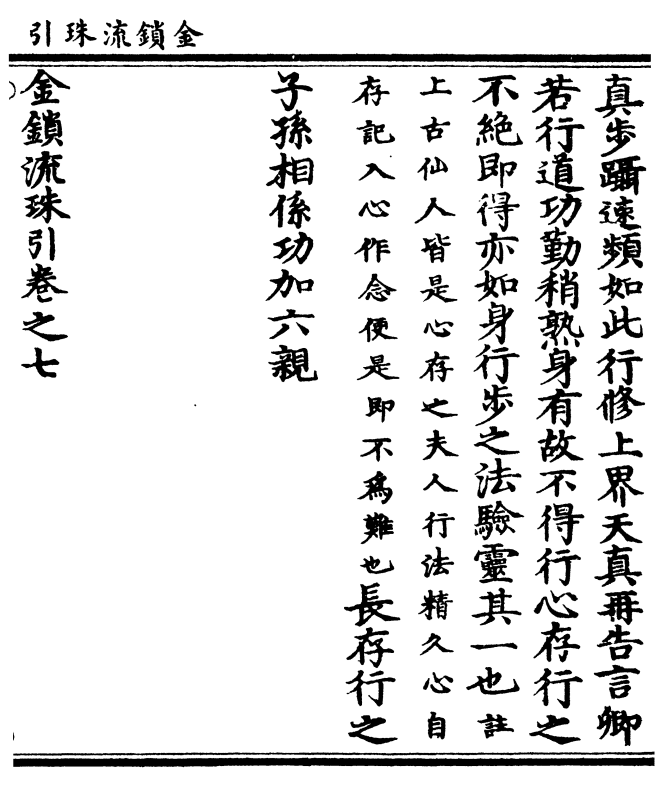 金鎖流珠引
真步躡速頻如此行修上界天真再告言卿
若行道功勤稍熟身有故不得行心存行之
不絶即得亦如身行步之法驗靈其一也註
上古仙人皆是心存之夫人行法精久心自
存記入心作念便是即不爲難也長存行之
子孫相係功加六親
金鎖流珠引卷之七